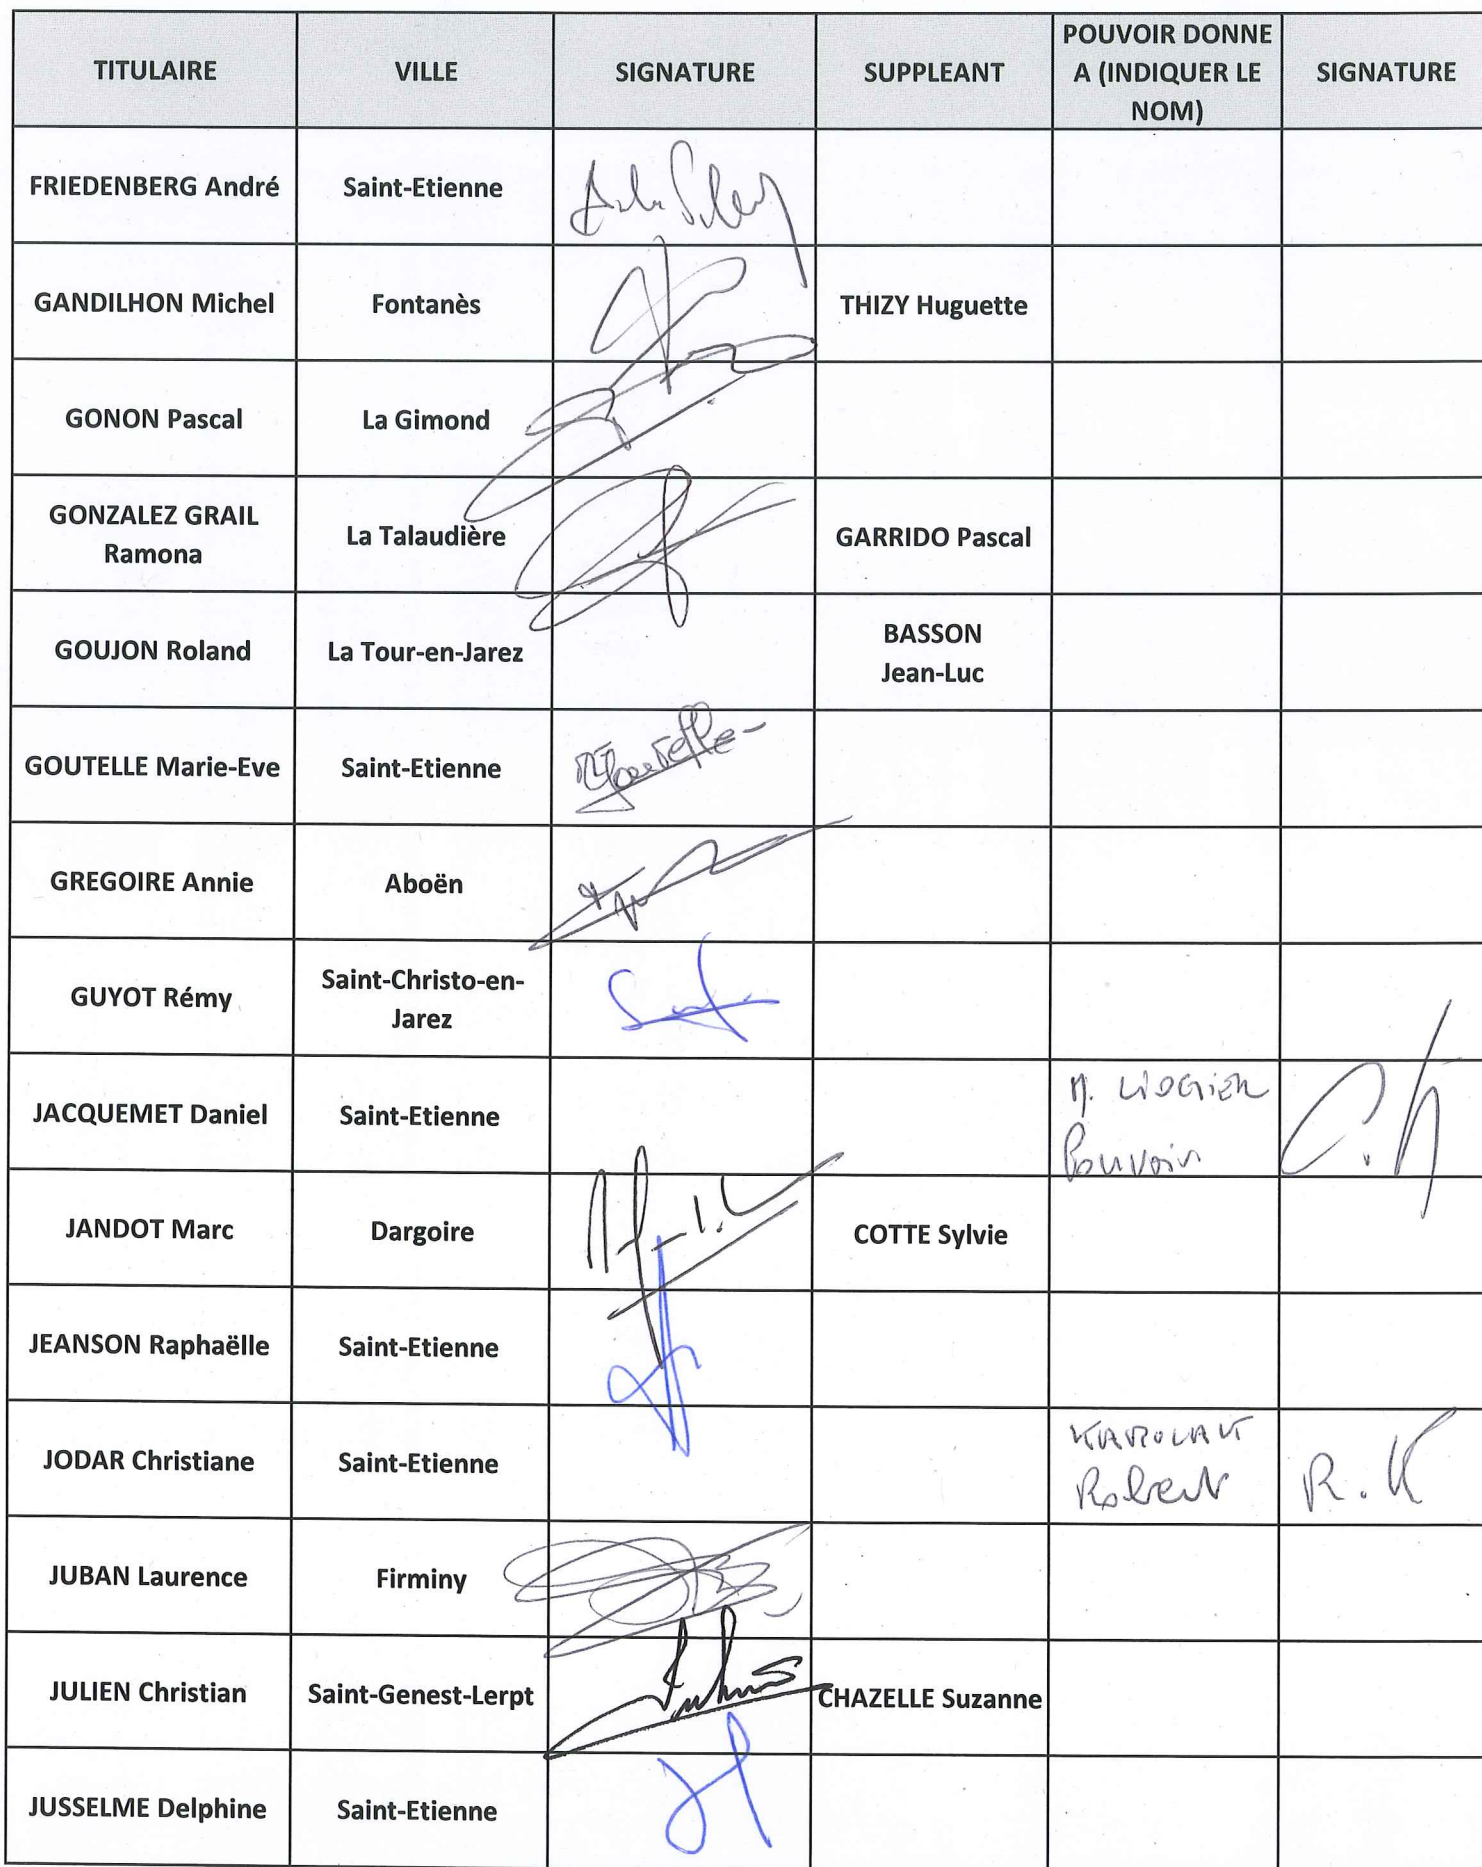 TITULAIRE VILLE SIGNATURE SUPPLEANT POUVOIR DONNE A (INDIQUER LE NOM) SIGNATURE
FRIEDENBERG André Saint-Etienne
GANDILHON Michel Fontanès THIZY Huguette
GONON Pascal La Gimond
GONZALEZ GRAIL Ramona La Talaudière GARRIDO Pascal
GOUJON Roland La Tour-en-Jarez BASSON Jean-Luc
GOUTELLE Marie-Eve Saint-Etienne
GREGOIRE Annie Aboën
GUYOT Rémy Saint-Christo-en-Jarez
JACQUEMET Daniel Saint-Etienne M. LIOGIER Pouvoir
JANDOT Marc Dargoire COTTE Sylvie
JEANSON Raphaëlle Saint-Etienne
JODAR Christiane Saint-Etienne Robert R.K
JUBAN Laurence Firminy
JULIEN Christian Saint-Genest-Lerpt CHAZELLE Suzanne
JUSSELME Delphine Saint-Etienne